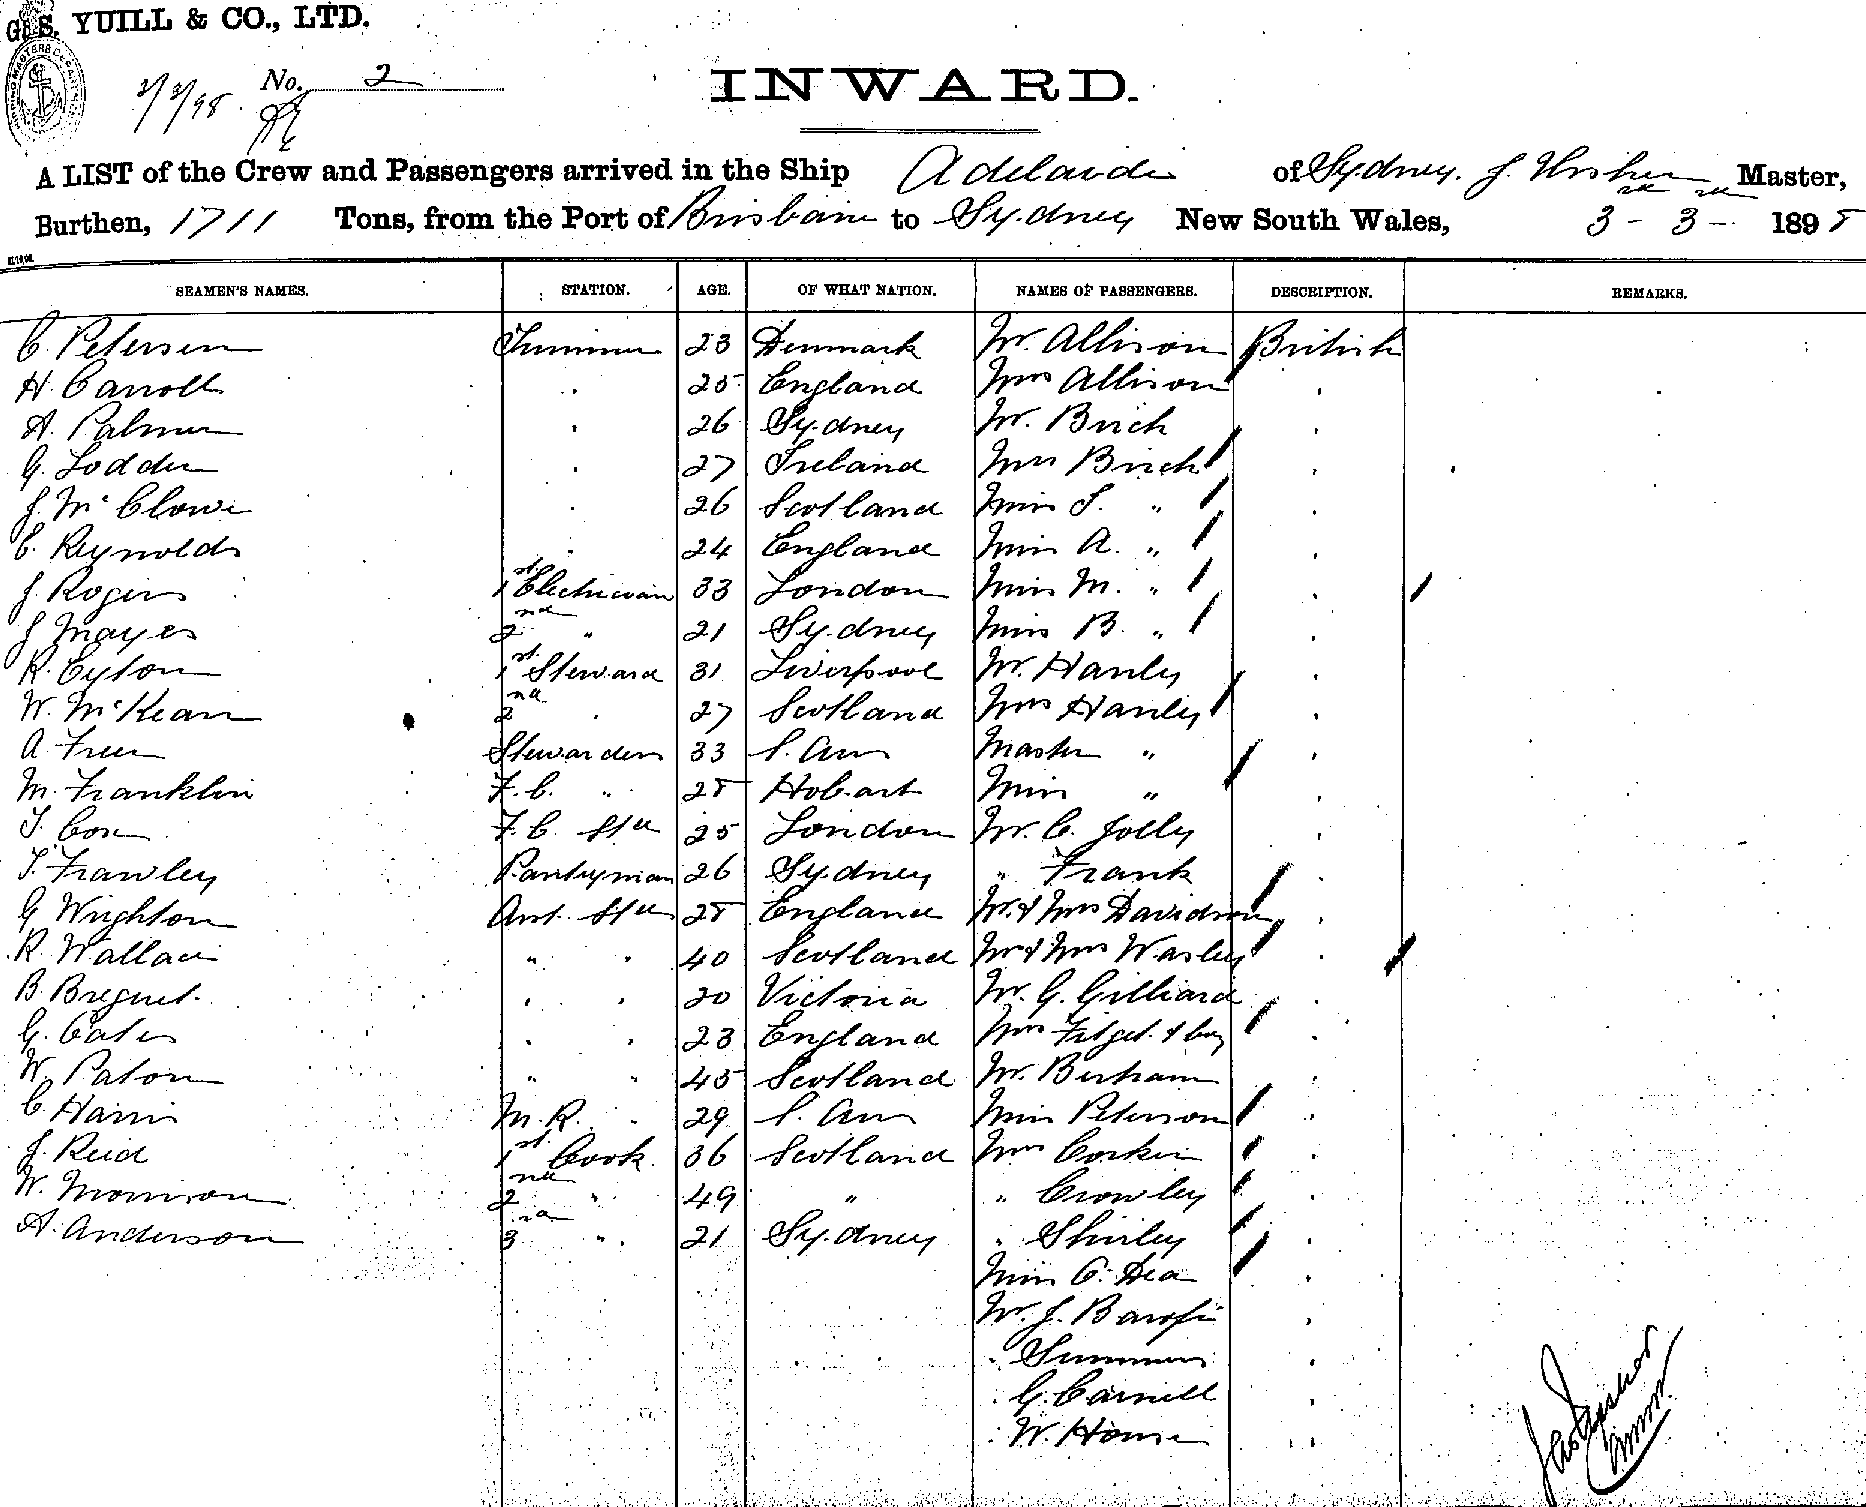 G. S. YUILL & CO., LTD.
3/3/98. No. 2
INWARD.
A LIST of the Crew and Passengers arrived in the Ship Adelaide of Sydney. J. Master,
Burthen, 1711 Tons, from the Port of Brisbane to Sydney New South Wales, 3 - 3 - 1898
SEAMEN'S NAMES. STATION. AGE. OF WHAT NATION. NAMES OF PASSENGERS. DESCRIPTION. REMARKS.
C. Petersen Trimmer 23 Denmark Mr. Allison British
H. Carroll . 25 England Mrs Allison .
A. Palmer . 26 Sydney Mr. Birch .
G. Lodden . 27 Ireland Mrs Birch .
J. McClowe . 26 Scotland Miss S. " .
C. Reynolds . 24 England Miss A. " .
J. Rogers 1st Electrician 33 London Miss M. "
J Mayes 2nd " 21 Sydney Miss B. " .
R. Eyton 1st Steward 31 Liverpool Mr. Hanley .
W. McKean 2nd . 27 Scotland Mrs Hanley .
A Free Stewardess 33 S. Aus Master " .
M. Franklin F. C. " 28 Hobart Miss " .
T. Cox F. C. Std 25 London Mr. C. Jolly .
T. Frawley Pantryman 26 Sydney " Frank .
G Wrighton Asst. Std 28 England Mr. & Mrs Davidson .
R. Wallace " . 40 Scotland Mr & Mrs Wasley .
B. Breguet. . . 20 Victoria Mr. G. Gilliard .
G. Cates . . 23 England Mrs Fitzget. & boy .
W. Paton " " 45 Scotland Mr. Berham
C. Harris M. R. . 29 S. Aus Miss Peterson .
J. Reid 1st Cook. 36 Scotland Mrs Corkin .
W. Morrison 2nd " 49 " " Crowley .
A. Anderson 3rd " 21 Sydney . Shirley .
Miss O'Dea .
Mr. J. .
. Summers .
. G. Carnell .
. W. House . .